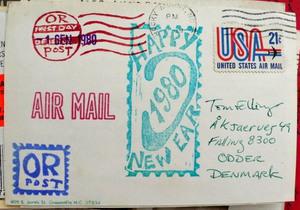 OR
FIRST DAY
1 GEN 1980
POST
PM
USA 21c
UNITED STATES AIR MAIL
HAPPY
1980
NEW EAR
AIR MAIL
OR
POST
Tom Elling
ÅKjaervej 49
Falling 8300
ODDER
DENMARK
Greenville N.C. 27834